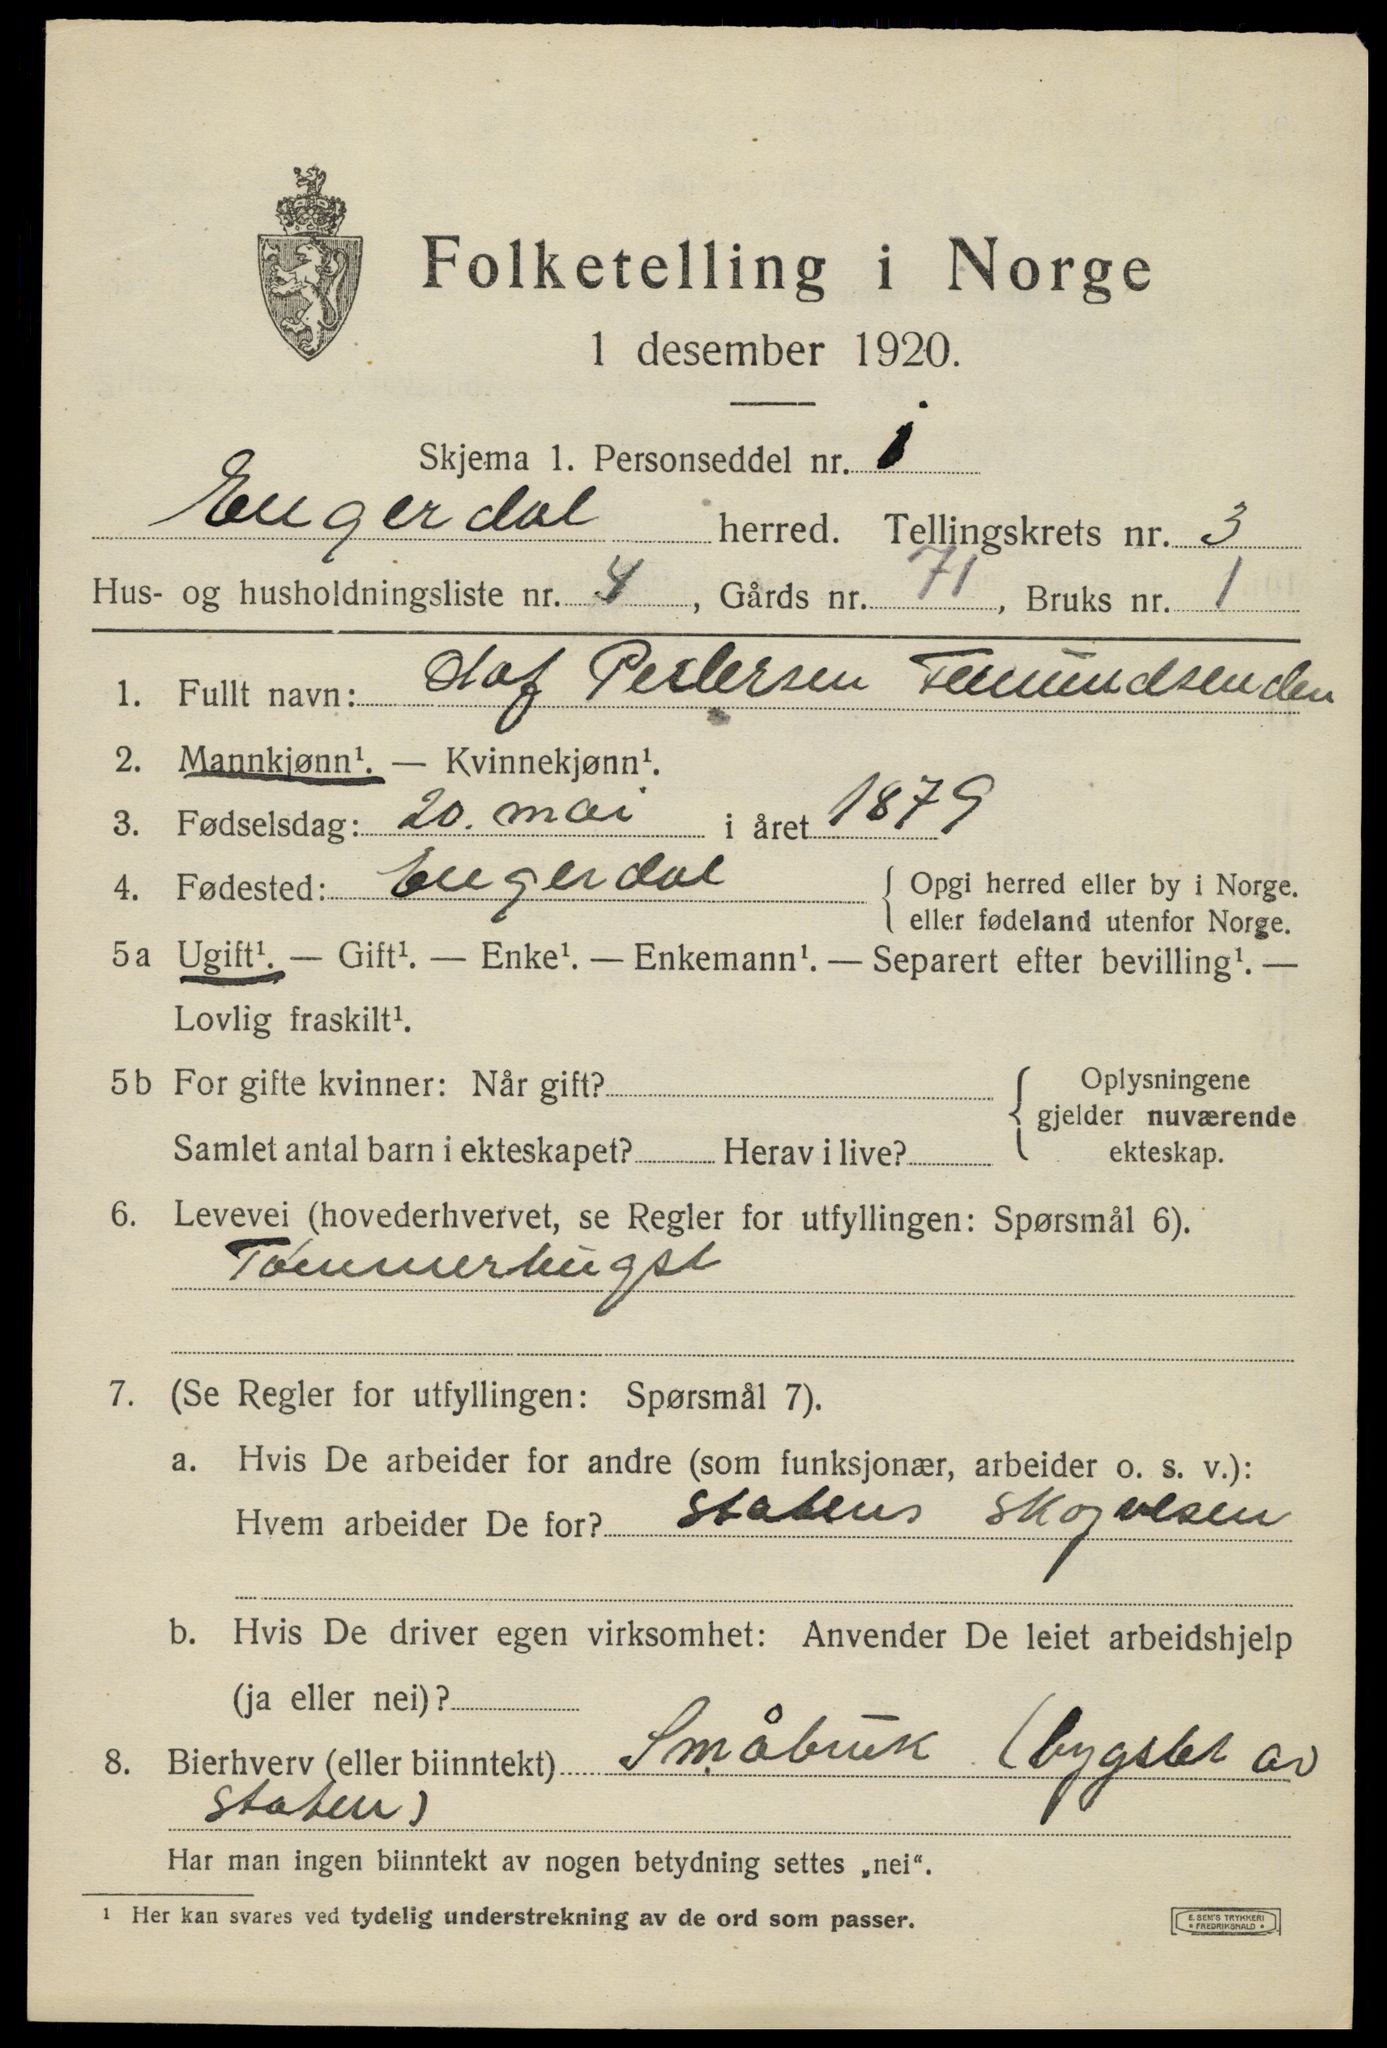 Folketelling i Norge
1 desember 1920.
Skjema 1. Personseddel nr. 1
Engerdal herred. Tellingskrets nr. 3
Hus- og husholdningsliste nr. 4, Gårds nr. 71, Bruks nr. 1
1. Fullt navn: Olaf Pedersen Femundsenden
2. Mannkjønn¹. — Kvinnekjønn¹.
3. Fødselsdag: 20. mai i året 1879
4. Fødested: Engerdal { Opgi herred eller by i Norge.
eller fødeland utenfor Norge.
5a Ugift¹. — Gift¹. — Enke¹. — Enkemann¹. — Separert efter bevilling¹. —
Lovlig fraskilt¹.
5b For gifte kvinner: Når gift? { Oplysningene
gjelder nuværende
Samlet antal barn i ekteskapet? Herav i live? ekteskap.
6. Levevei (hovederhvervet, se Regler for utfyllingen: Spørsmål 6).
Tømmerhugst
7. (Se Regler for utfyllingen: Spørsmål 7).
a. Hvis De arbeider for andre (som funksjonær, arbeider o. s. v.):
Hvem arbeider De for? Statens Skogvesen
b. Hvis De driver egen virksomhet: Anvender De leiet arbeidshjelp
(ja eller nei)?
8. Bierhverv (eller biinntekt) Småbruk (bygslet av
staten)
Har man ingen biinntekt av nogen betydning settes „nei“.
¹ Her kan svares ved tydelig understrekning av de ord som passer.
E. SEM'S TRYKKERI
* FREDRIKSHALD *